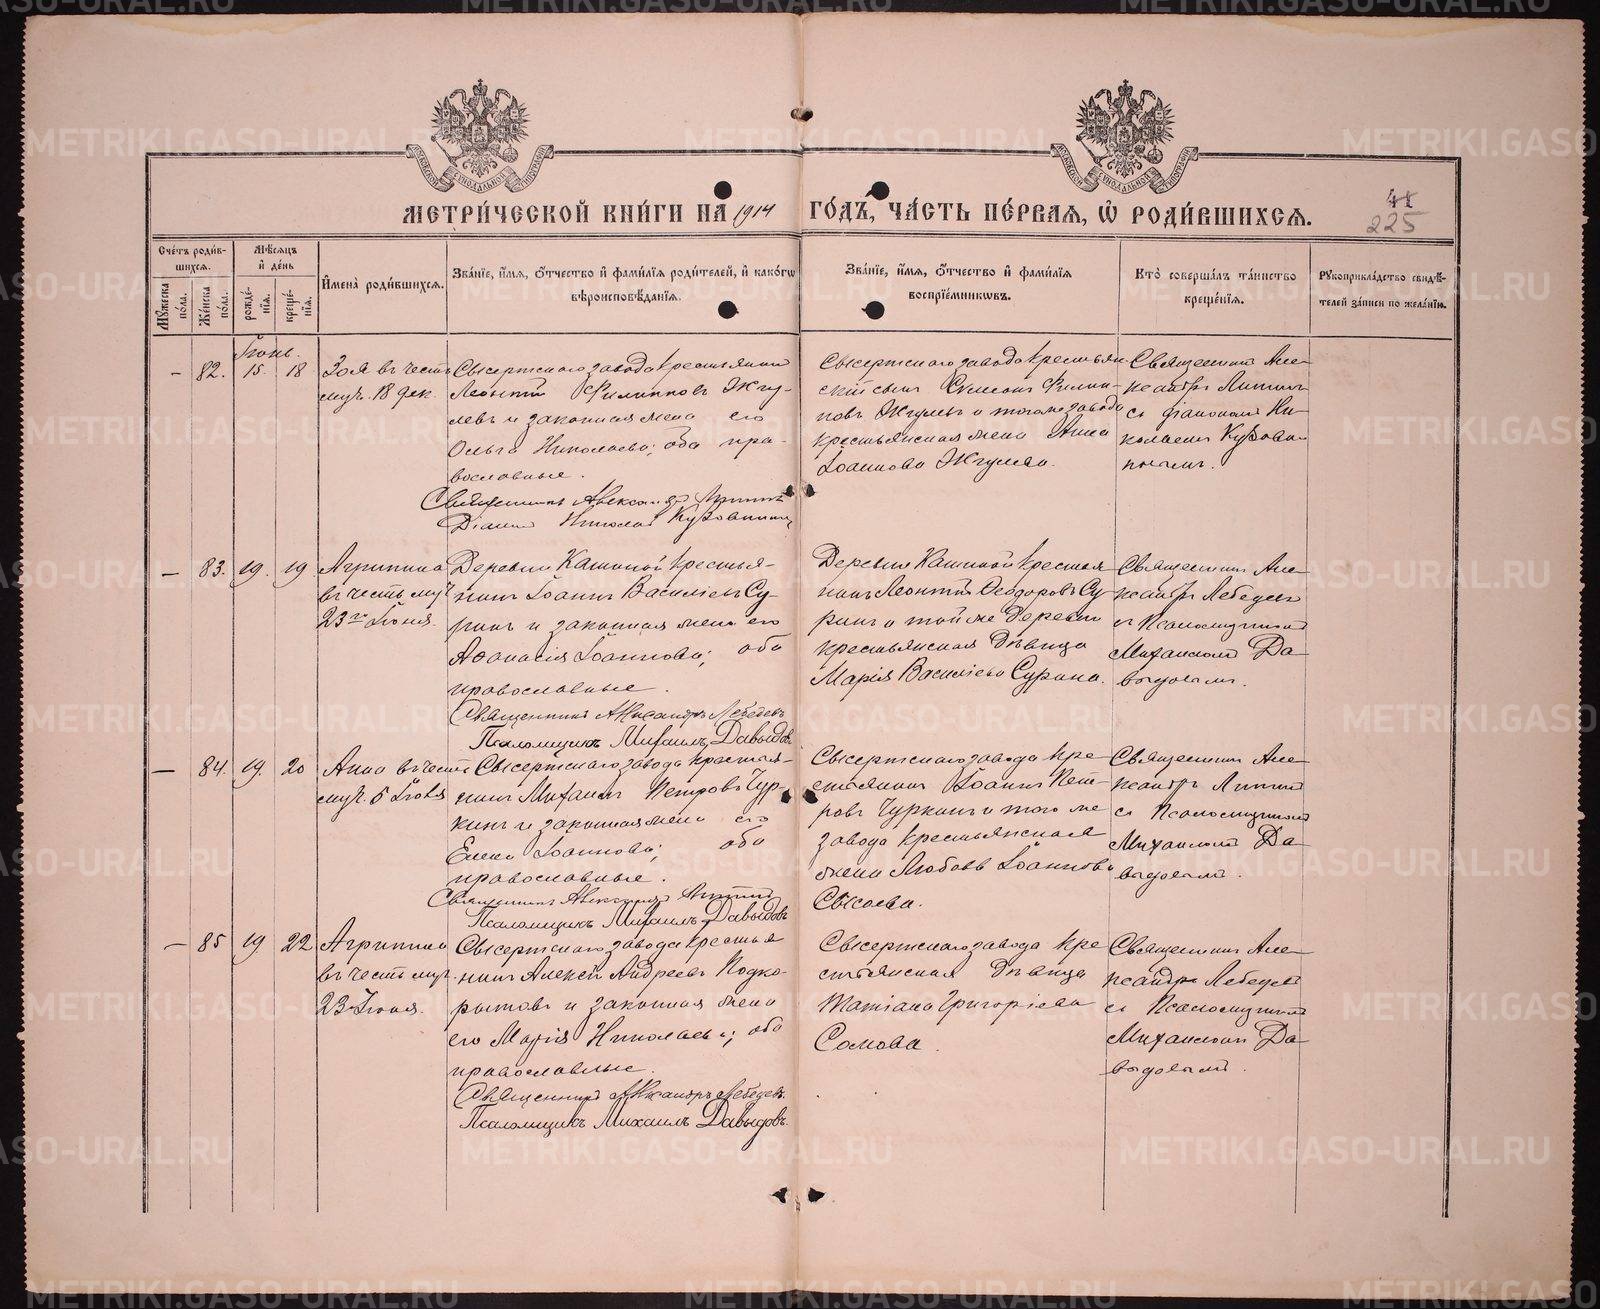 МЕТРИ́ЧЕСКОЙ КНИ́ГИ НА 1914 ГО́ДЪ, ЧА́СТЬ ПЕ́РВАЯ, Ѽ РОДИ́ВШИХСЯ.
225
Сче́тъ роди́в-
шихся.
Мѣ́сяцъ
и҆ де́нь
Му́жеска
по́ла.
Же́нска
по́ла.
рожде́-
нїя.
креще́-
нїя.
И҆мена̀ роди́вшихся.
Зва́нїе, и҆́мя, ѻ҆́тчество и҆ фами́лїя роди́телей, и҆ како́гѡ
вѣроисповѣ́данїя.
Зва́нїе, и҆́мя, ѻ҆́тчество и҆ фами́лїя
воспрїе́мникѡвъ.
Кто̀ соверша́лъ та́инство
креще́нїя.
Рꙋкоприкла́дство свидѣ́-
телей за́писи по жела́нїю.
Іюнь.
– 82. 15. 18
Зоя въ честь
муч. 18 дек.
Сысертскаго завода крестьянинъ
Леонтій Филипповъ Жгу-
левъ и законная жена его
Ольга Николаева; оба пра-
вославные.
Священникъ Александръ
Діаконъ Николай Кузовникинъ
Сысертскаго завода крестьян-
скій сынъ Симеонъ Филип-
повъ Жгулевъ и того же завода
крестьянская жена Анна
Іоаннова Жгулева.
Священникъ Але-
ксандръ
съ діакономъ Ни-
колаемъ Кузовни-
кинымъ.
– 83. 19. 19
Агриппина
въ честь муч.
23го Іюня.
Деревни Кашиной крестья-
нинъ Іоаннъ Василіевъ Су-
ринъ и законная жена его
Аѳанасія Іоаннова; оба
православные.
Священникъ Александръ Лебедевъ
Псаломщикъ Михаилъ Давыдовъ
Деревни Кашиной крестья-
нинъ Леонтій Ѳеодоровъ Су-
ринъ и той же деревни
крестьянская дѣвица
Марія Василіева Сурина.
Священникъ Але-
ксандръ Лебедевъ
съ Псаломщикомъ
Михаиломъ Да-
выдовымъ.
– 84. 19. 20
Анна въ честь
муч. 5 Іюля
Сысертскаго завода крестья-
нинъ Михаилъ Петровъ Чур-
кинъ и законная жена его
Елена Іоаннова; оба
православные.
Священникъ Александръ
Псаломщикъ Михаилъ Давыдовъ
Сысертскаго завода кре-
стьянинъ Іоаннъ Пет-
ровъ Чуркинъ и того же
завода крестьянская
жена Любовь Іоаннова
Сысоева.
Священникъ Але-
ксандръ
съ Псаломщикомъ
Михаиломъ Да-
выдовымъ.
– 85 19 22
Агриппина
въ честь муч.
23 Іюня.
Сысертскаго завода крестья-
нинъ Алексѣй Андреевъ Подко-
рытовъ и законная жена
его Марія Николаева; оба
православные.
Священникъ Александръ Лебедевъ.
Псаломщикъ Михаилъ Давыдовъ.
Сысертскаго завода кре-
стьянская дѣвица
Татіана Григоріева
Сомова.
Священникъ Але-
ксандръ Лебедевъ
съ Псаломщикомъ
Михаиломъ Да-
выдовымъ.
METRIKI.GASO-URAL.RU